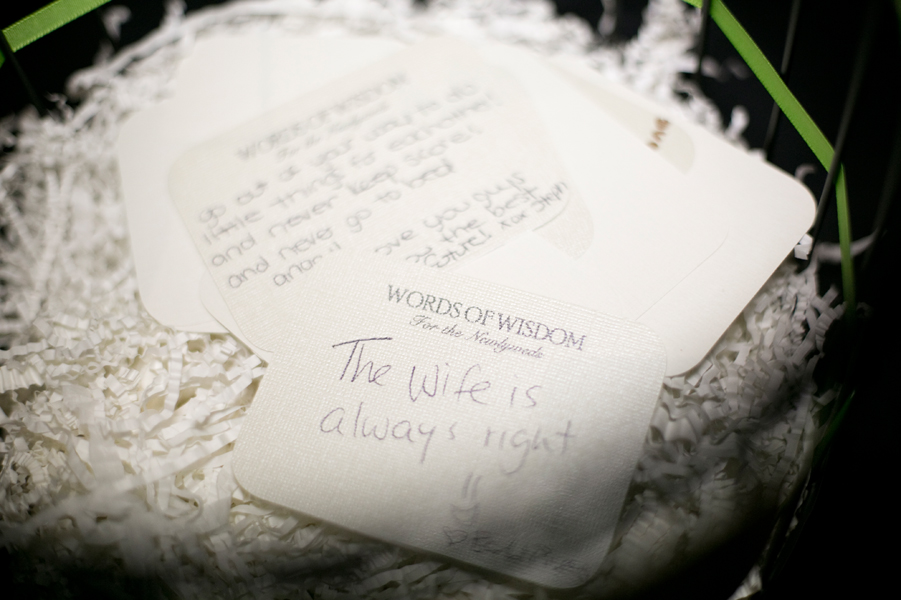 WORDS OF WISDOM
go out of your way to do
little things for eachother
and never keep score!
and never go to bed
ove you guys
the best
WORDS OF WISDOM
For the Newlyweds
The Wife is
always right